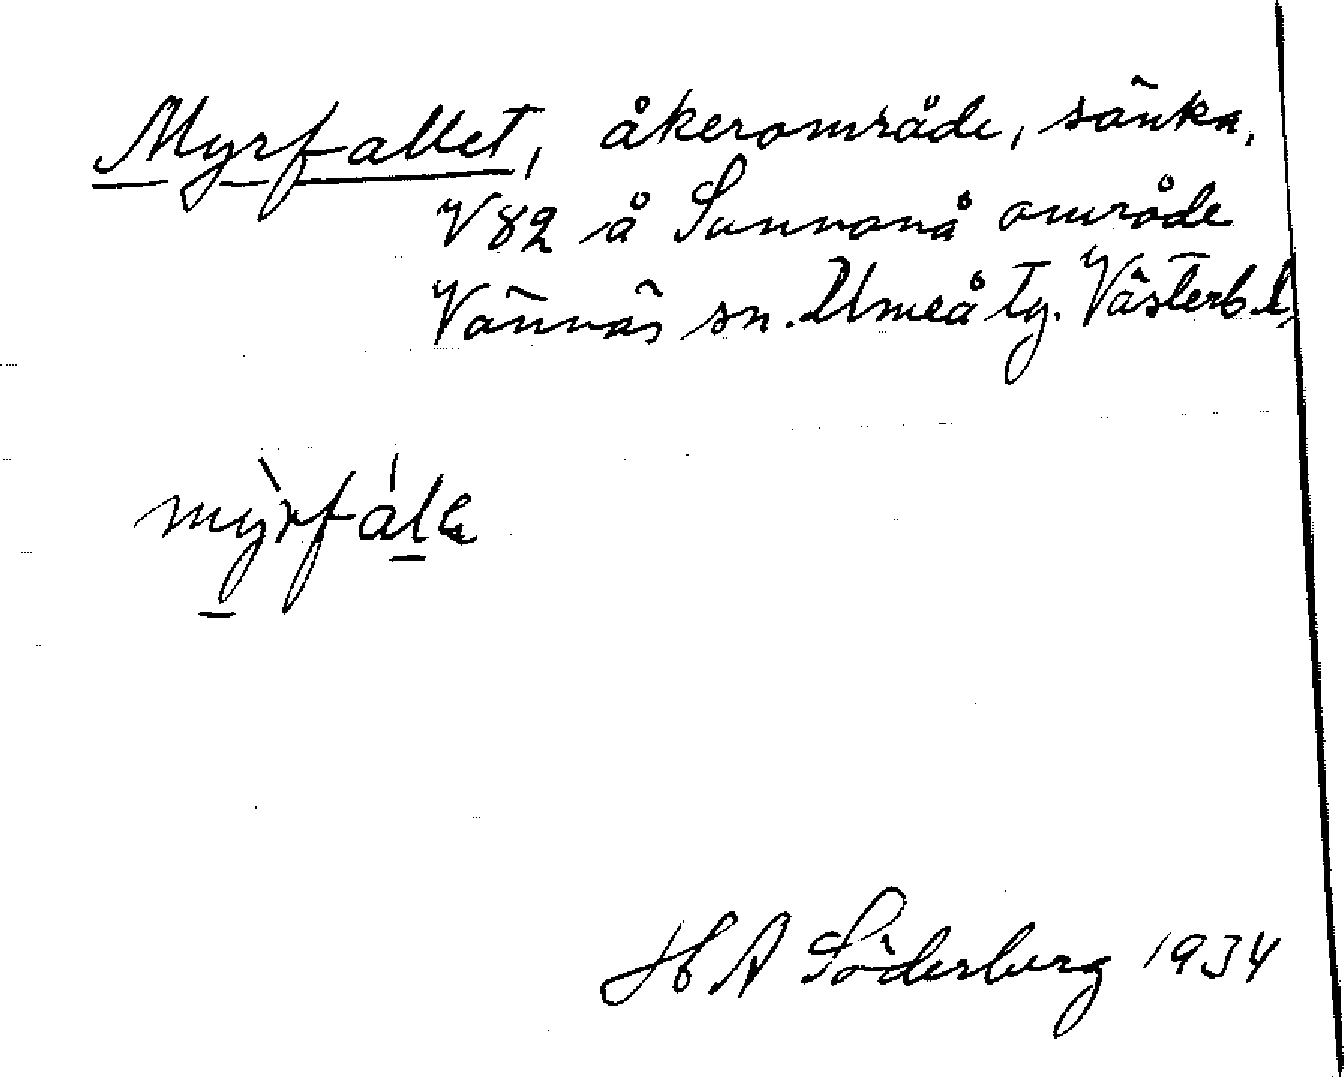 Myrfallet, åkerområde, sänka,
V82 å Sunnanå område
Vännäs sn. Umeå tg. Västerb. l,
mỳrfálɛ
H A Söderberg 1934